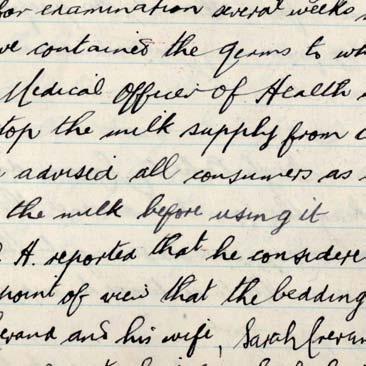 for examination several weeks
ve contained the germs to wh
Medical Officer of Health
top the milk supply from
advised all consumers as
the milk before using it
. H. reported that he considere
point of view that the bedding
and his wife, Sarah